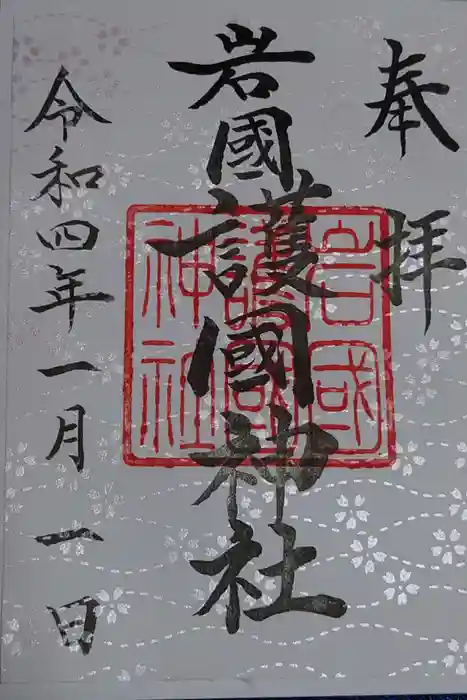 奉拝
岩國護國神社
岩國護國神社
令和四年一月一日